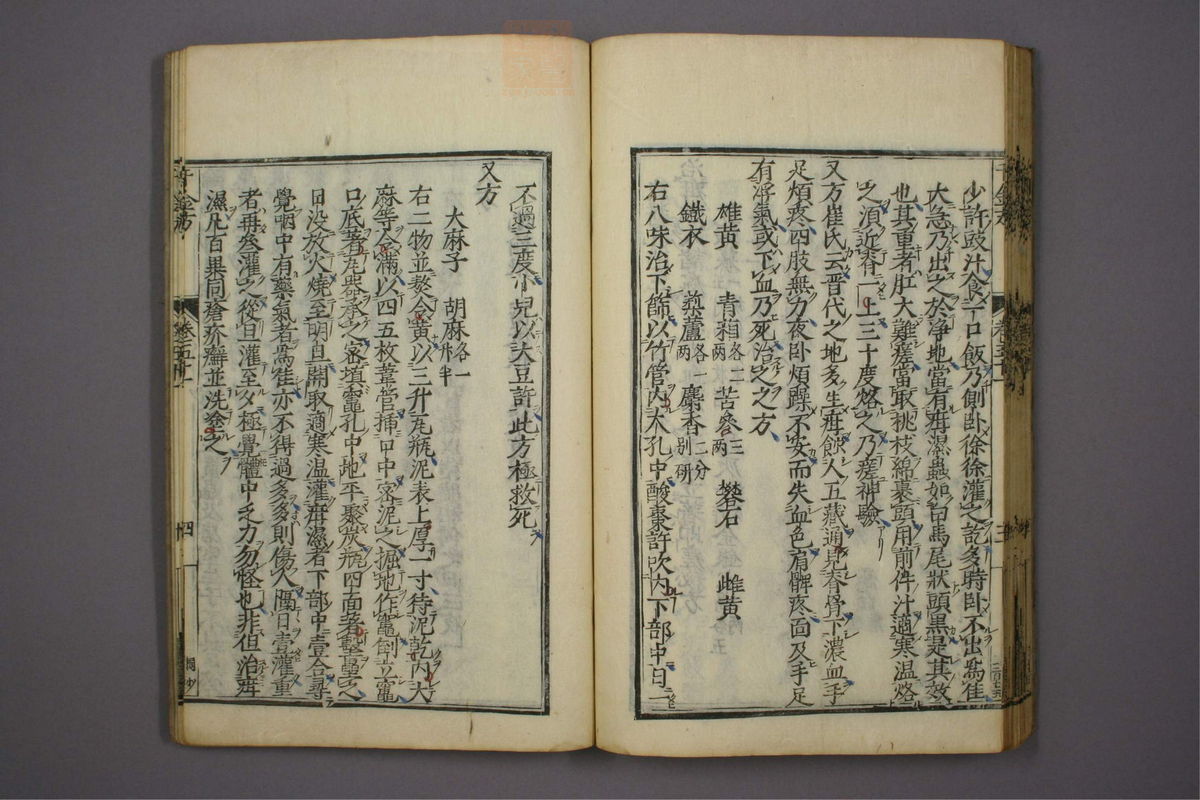 少許豉汁食一口飯乃側卧徐徐灌之訖多時卧不出爲佳
大急乃出之於淨地當有疳濕蟲如白馬尾狀頭黒是其效
也其重者肛大難瘥當取桃枝綿裹頭用前件汁適寒温烙
之湏近脊一上三十度烙之乃瘥神驗
又方崔氏云晋代之地多生疳蝕人五藏通見脊骨下濃血手
足煩疼四肢無力夜卧煩躁不安而失血色肩髀疼面及手足
有浮氣或下血乃死治之之方
雄黄 青葙各二兩 苦參三兩 礬石 雌黄
鐵衣 藜蘆各一兩 麝香二分别研
右八味治下篩以竹管内大孔中酸棗許吹内下部中日一
不過三度小兒以大豆許此方極救死
又方
大麻子 胡麻各一升半
右二物並熬令黄以三升瓦瓶泥表上厚一寸待泥乾内大
麻等令滿以四五枚葦管揷口中密泥之掘地作竈倒立竈
口底著瓦器承之密填竈孔中地平聚炭瓶四面著墼壘之
日没放火燒至明旦開取適寒温灌疳濕者下部中壹合尋
覺咽中有藥氣者爲佳亦不得過多多則傷人隔日壹灌重
者再叁灌之從旦灌至夕極覺體中乏力勿怪也非但治疳
濕凡百異同瘡疥癬並洗塗之
千金方
卷十五下
四